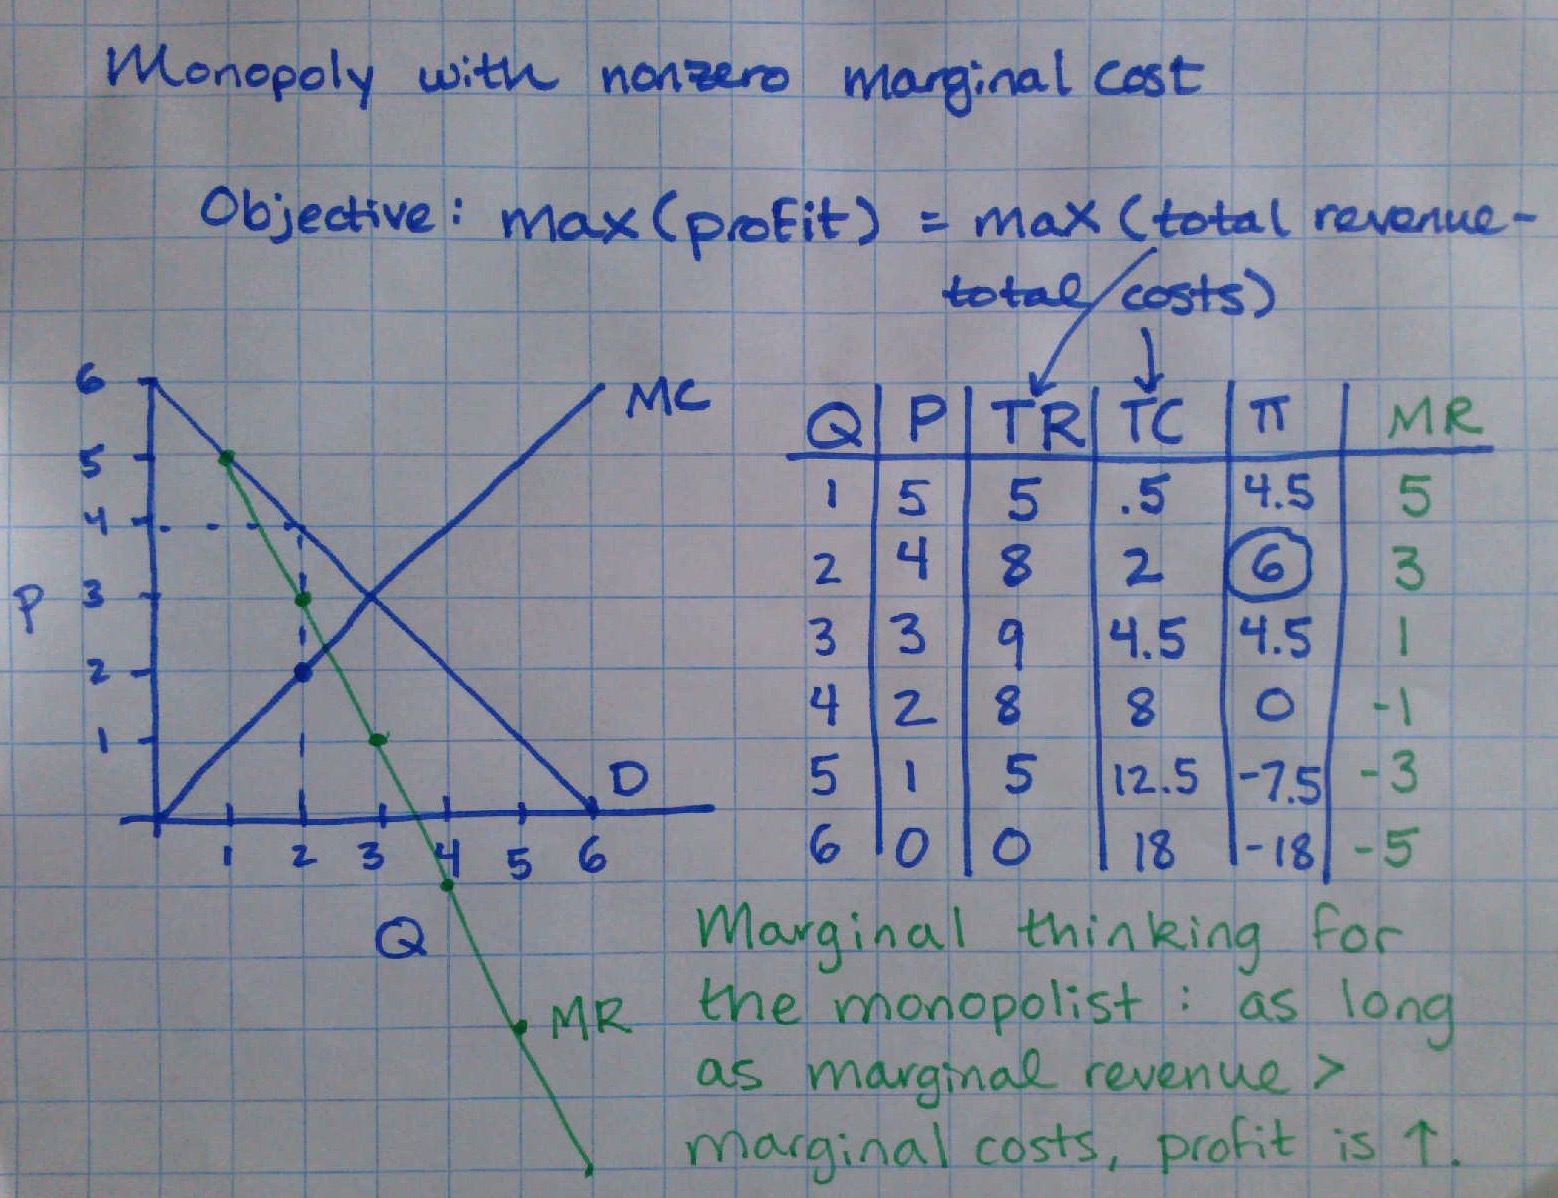 Monopoly with nonzero marginal cost
Objective: max(profit) = max (total revenue-
total costs)
6
5
4
3
2
1
P
MC
D
1 2 3 4 5 6
Q
MR
Q P TR TC π MR
1 5 5 .5 4.5 5
2 4 8 2 6 3
3 3 9 4.5 4.5 1
4 2 8 8 0 -1
5 1 5 12.5 -7.5 -3
6 0 0 18 -18 -5
Marginal thinking for
the monopolist: as long
as marginal revenue >
marginal costs, profit is ↑.